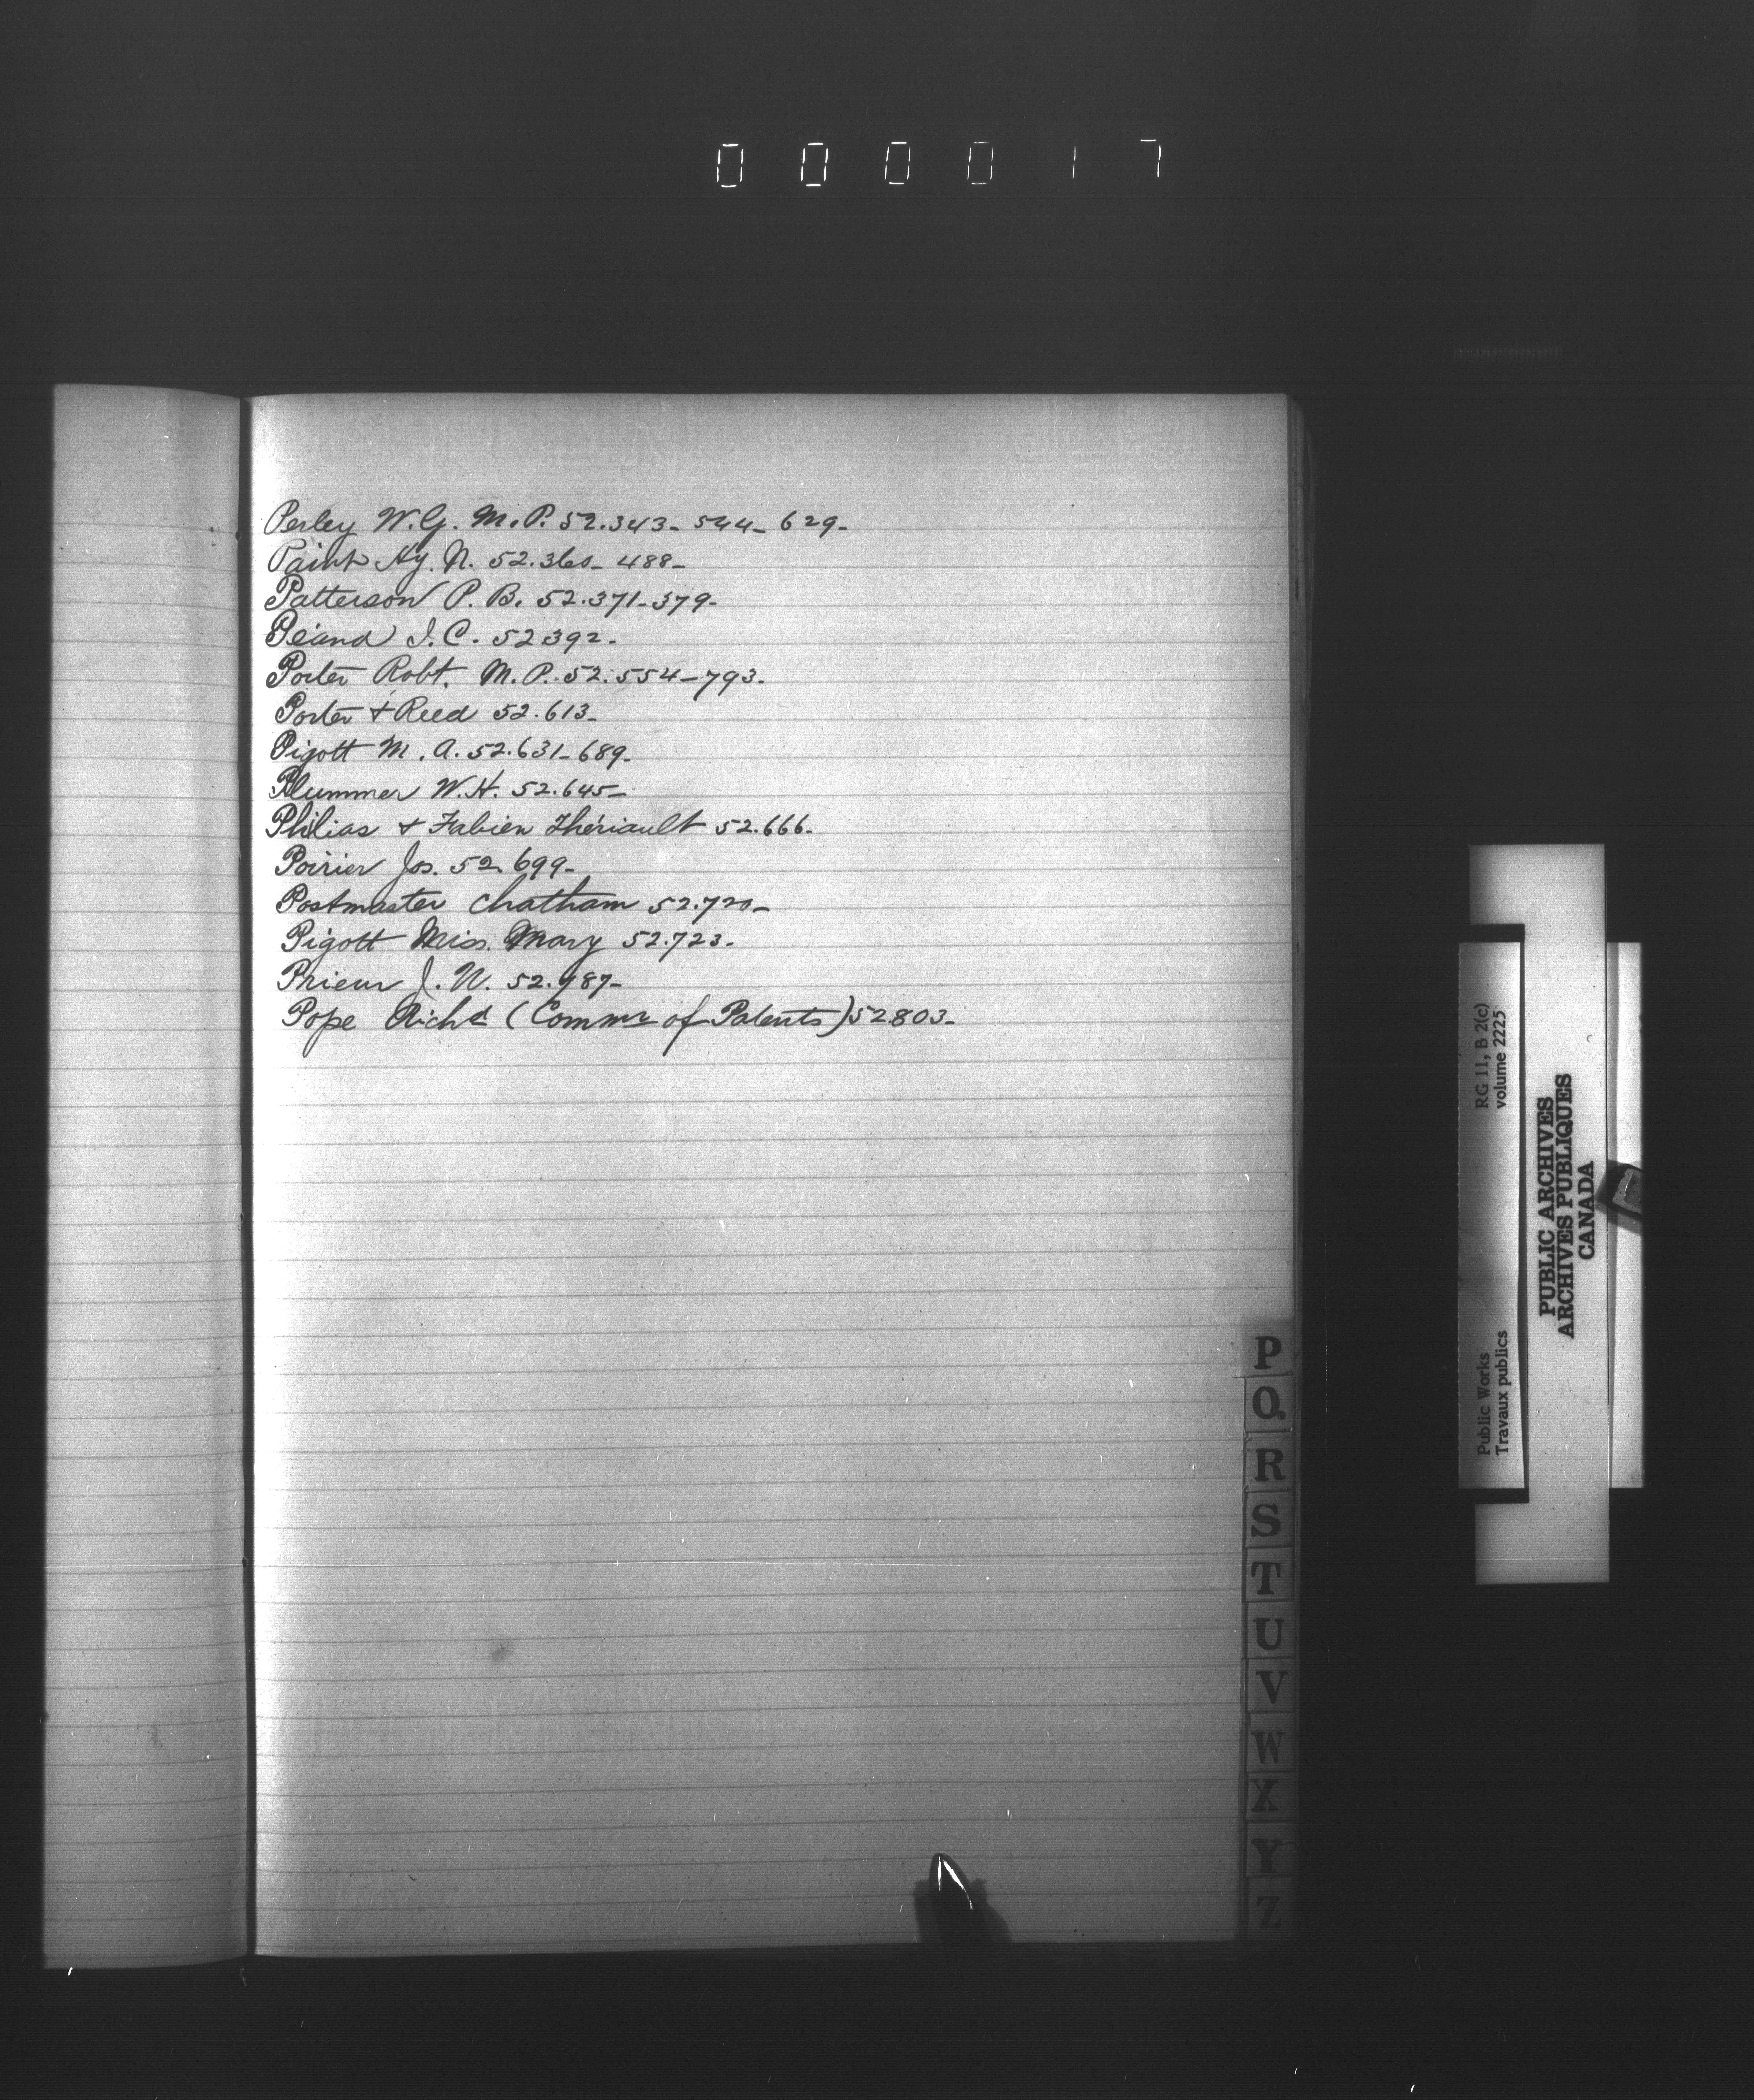 000017
Perley W.G. M.P. 52.343- 544- 629-
Paint Hy. N. 52.360- 488-
Patterson P. B. 52.371-379-
I.C. 52392-
Porter Robt. M.P. 52.554-793-
Porter & Reed 52.613-
Pigott M. A. 52.631-689-
Plummer W.H. 52.645-
Philias & Fabien Thériault 52.666-
Poirier Jos. 52.699-
Postmaster Chatham 52.720-
Pigott Miss. Mary 52.723-
Prieur J. N.
Pope Richd (Commr of Patents) 52803-
P
Q
R
S
T
U
V
W
X
Y
Z
Public Works
Travaux publics
RG 11, B 2(c)
volume 2225
PUBLIC ARCHIVES
ARCHIVES PUBLIQUES
CANADA